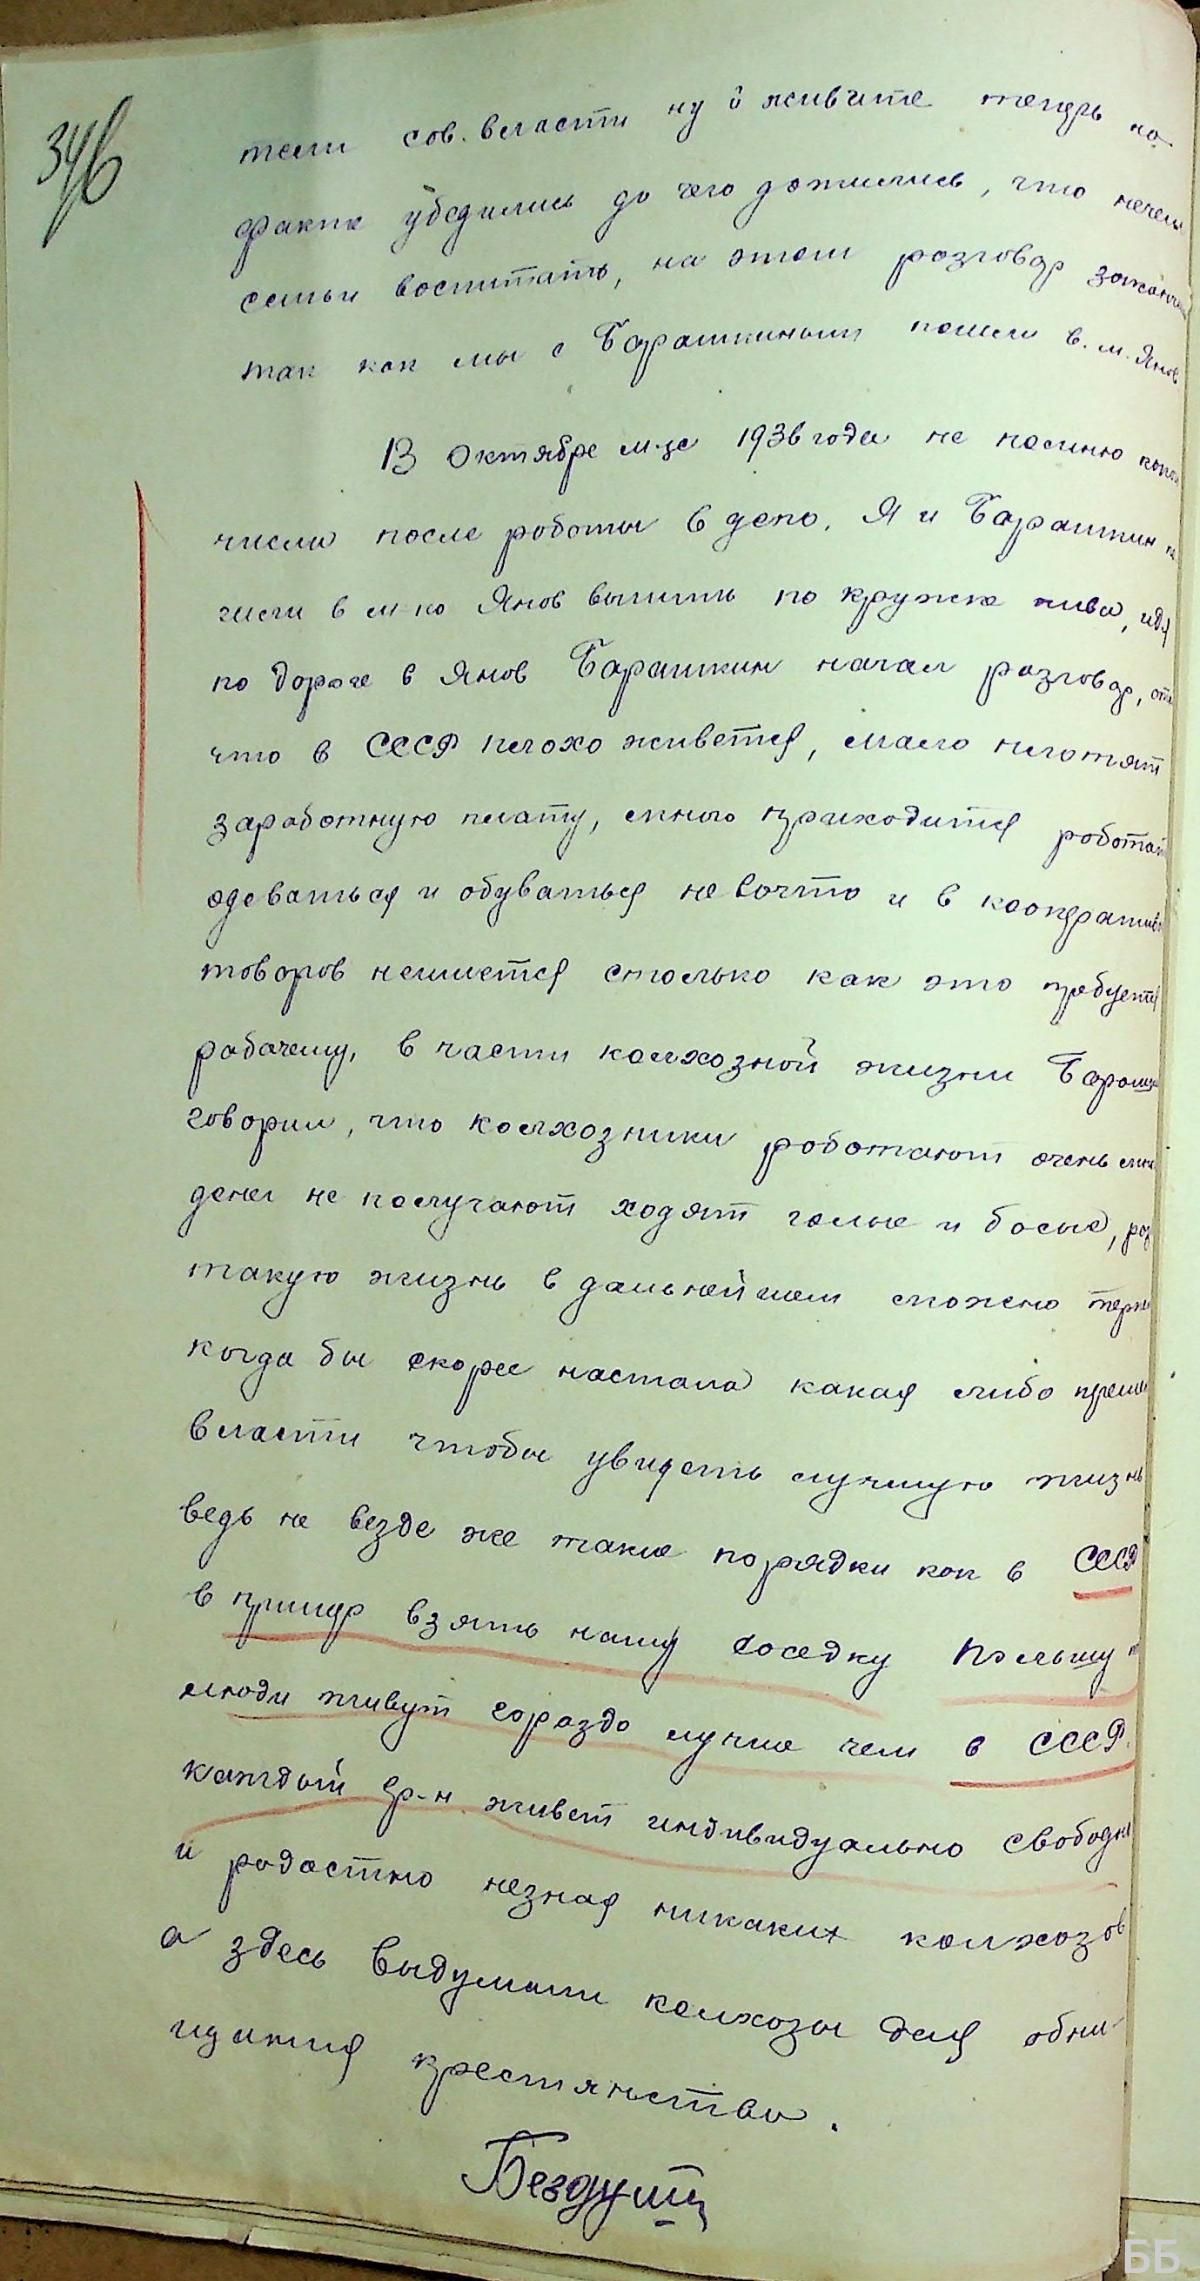 346
тели сов. власти ну и живите теперь на
факте убедились до чего дожились, что нечем
семьи воспитать, на этом разговор закончи
так как мы с Барашкиным пошли в. м. Янов
В Октябре м-це 1936 года не помню како
числа после роботы в депо. Я и Барашкин по
шли в м-ко Янов выпить по кружке пива, идя
по дороге в Янов Барашкин начал розговор, о том
что в СССР плохо живется, мало плотят
заработную плату, много приходится роботать
одеваться и обуваться не вочто и в кооператив
товаров неимется столько как это требуется
рабочему, в части колхозной жизни Барашк
говорил, что колхозники роботают очень мно
денег не получают ходят голые и босые, роз
такую жизнь в дальнейшем можно терпе
когда бы скорее настала какая либо преме
власти чтобы увидеть лучшую жизнь
ведь не везде же такие порядки как в СССР
в пример взять нашу соседку Польшу т
люди живут гораздо лучше чем в СССР.
каждый гр-н живет индивидуально свободно
и родостно незная никаких колхозов
а здесь выдумали колхозы для обни-
щания крестянства.
Бездущ
ББ